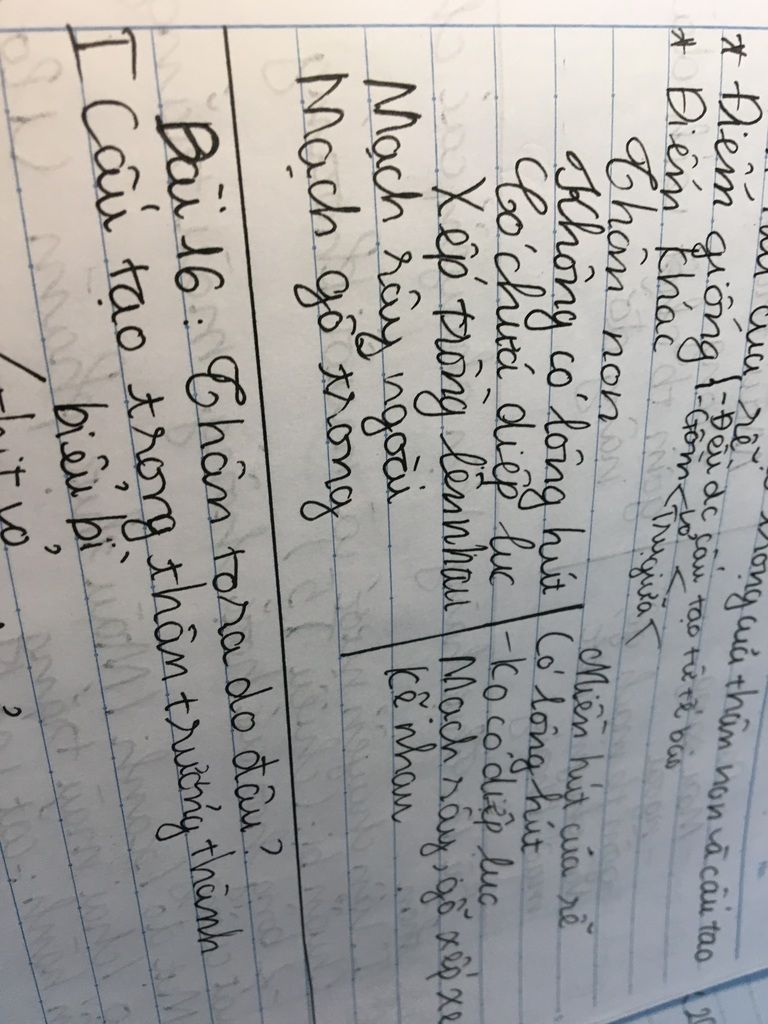 trong của thân non và cấu tạo
của rễ
* Điểm giống {- Đều đc cấu tạo từ tế bào
- Gồm < Vỏ <
Trụ giữa <
* Điểm khác
Thân non | Miền hút của rễ
Không có lông hút | Có lông hút
Có chứa diệp lục | - Ko có diệp lục
Xếp trồng lên nhau | Mạch rây, gỗ xếp xe
Mạch rây ngoài | kẽ nhau
Mạch gỗ trong
Bài 16: Thân to ra do đâu?
I Cấu tạo trong thân trưởng thành
biểu bì
thịt vỏ